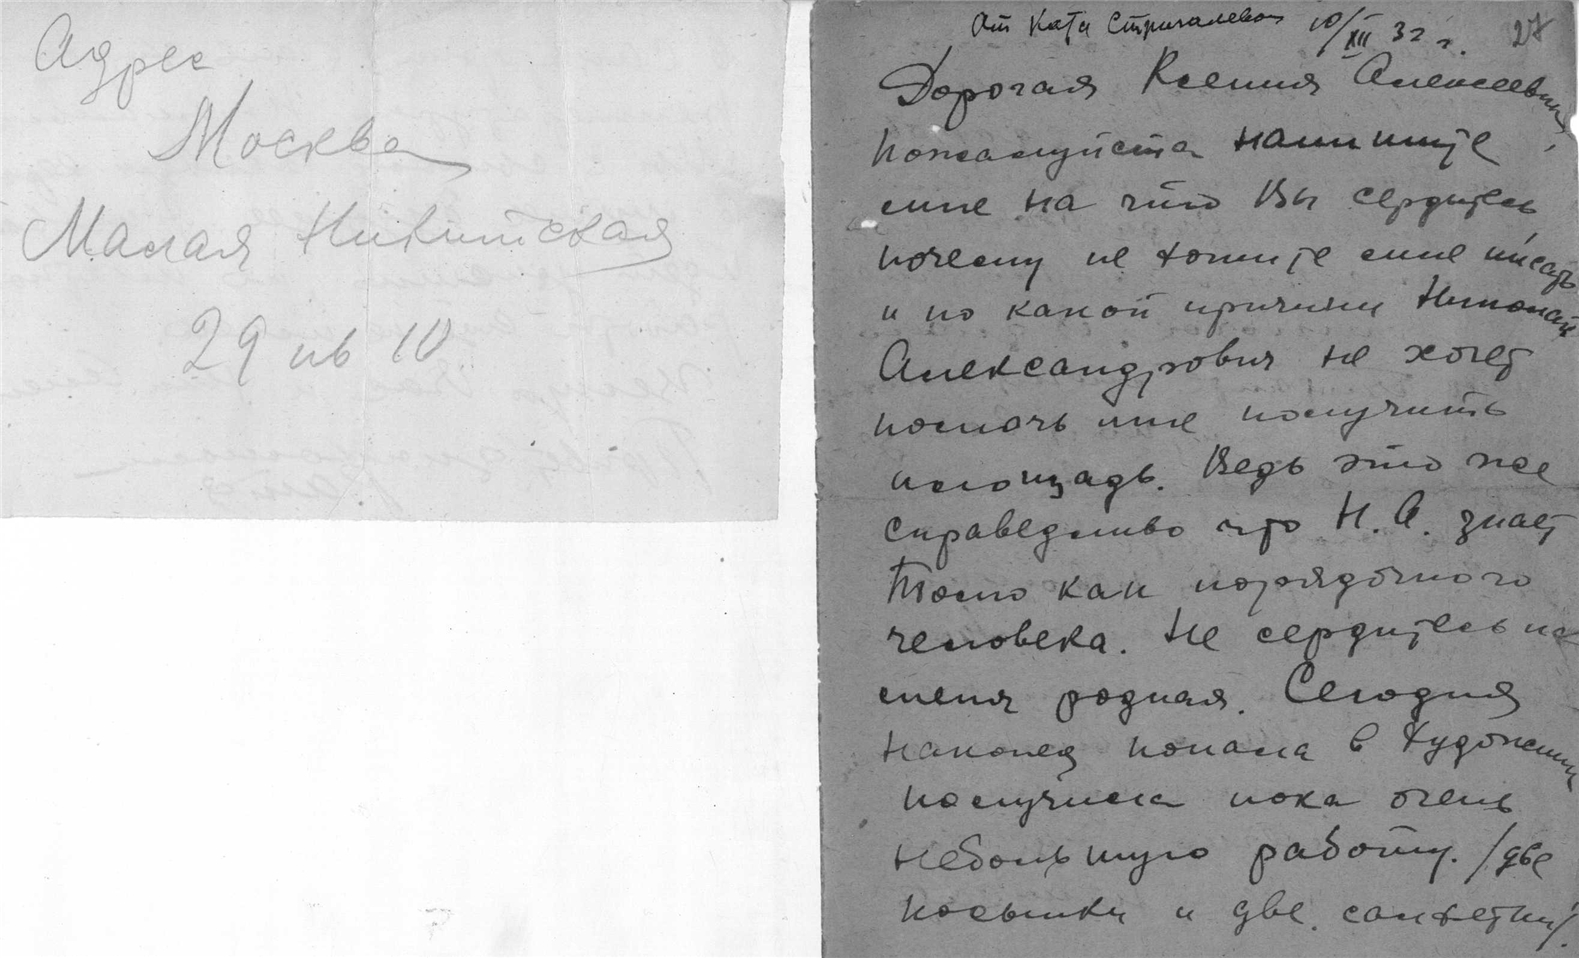 Адрес
Москва
Малая Никитская
29 кв 10
От Кати Стригалевой 10/XII 32 г. 27
Дорогая Ксения Алексеевна,
пожалуйста напишите
мне на что Вы сердитесь
почему не хотите мне писать
и по какой причини Николай
Александрович не хочет
помочь мне получить
площадь. Ведь это же
справедливо что Н. А. знает
Тому как порядочного
человека. Не сердитесь на
меня родная. Сегодня
наконец попала в Художник
получила пока очень
небольшую работу. /две
косынки и две салфетки/.